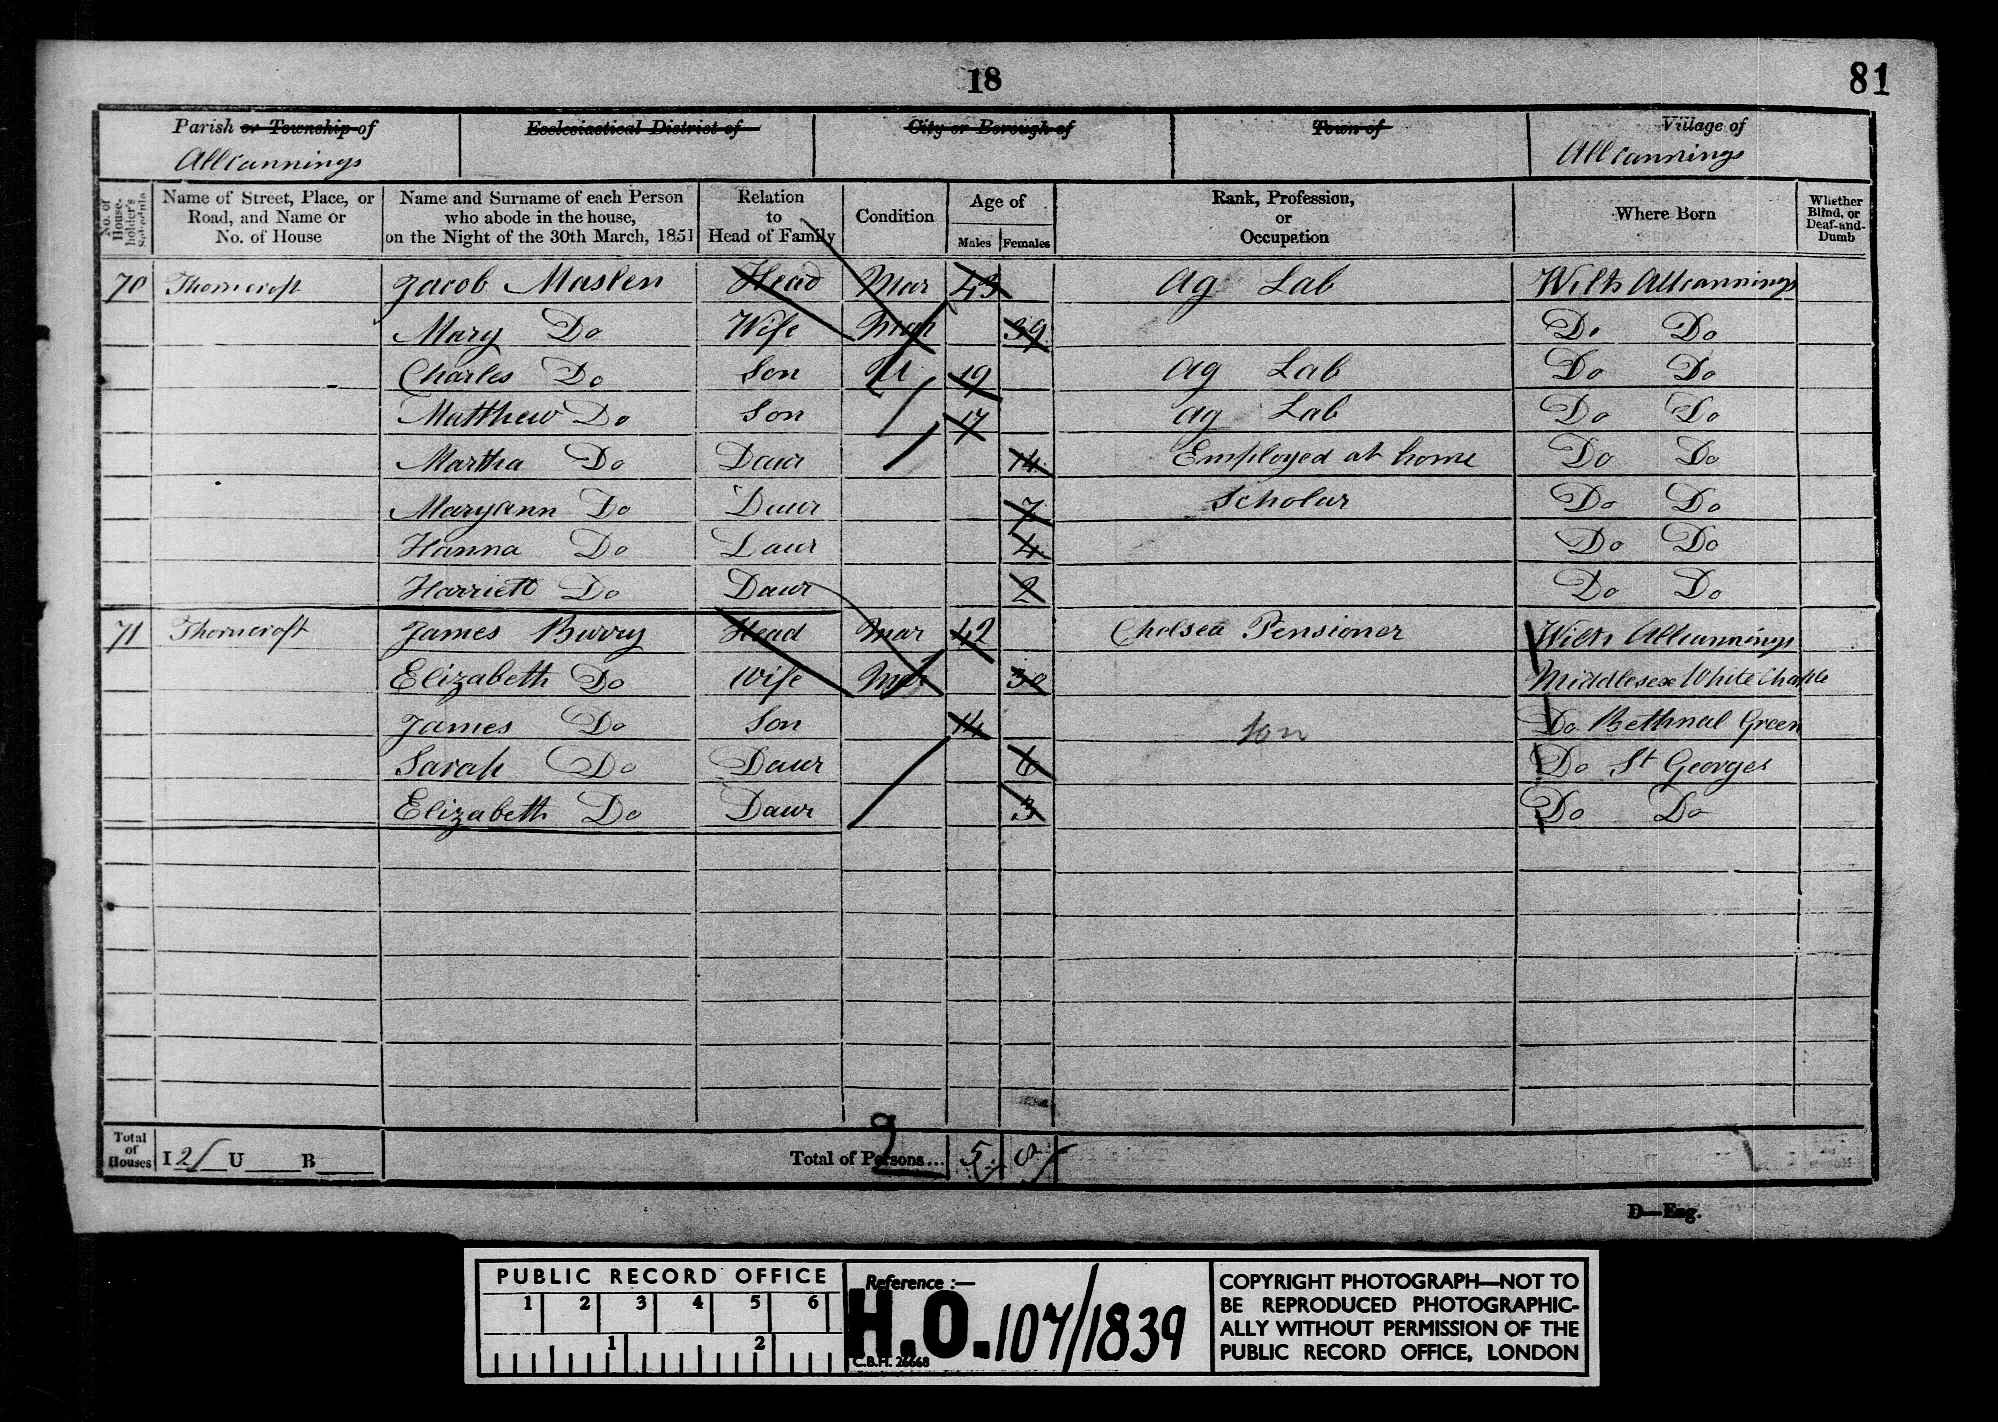 18
81
Parish or Township of Ecclesiastical District of City or Borough of Town of Village of
Allcannings Allcannings
No. of House-holder's Schedule Name of Street, Place, or Road, and Name or No. of House Name and Surname of each Person who abode in the house, on the Night of the 30th March, 1851 Relation to Head of Family Condition Age of Males Females Rank, Profession, or Occupation Where Born Whether Blind, or Deaf-and-Dumb
70 Thorncroft Jacob Maslen Head Mar 43 Ag Lab Wilts Allcannings
Mary Do Wife Mar 39 Do Do
Charles Do Son U 19 Ag Lab Do Do
Matthew Do Son 17 Ag Lab Do Do
Martha Do Daur 14 Employed at home Do Do
Maryann Do Daur 7 Scholar Do Do
Hanna Do Daur 4 Do Do
Harriett Do Daur 2 Do Do
71 Thorncroft James Burry Head Mar 42 Chelsea Pensioner Wilts Allcannings
Elizabeth Do Wife Mar 30 Middlesex White Chaple
James Do Son 14 Son Do Bethnal Green
Sarah Do Daur 6 Do St Georges
Elizabeth Do Daur 3 Do Do
Total of Houses I 2 U B Total of Persons... 5 8
D—Eng.
PUBLIC RECORD OFFICE
1 2 3 4 5 6
1 2
Reference :—
H.O. 107/1839
C.B.H. 26668
COPYRIGHT PHOTOGRAPH—NOT TO
BE REPRODUCED PHOTOGRAPHIC-
ALLY WITHOUT PERMISSION OF THE
PUBLIC RECORD OFFICE, LONDON